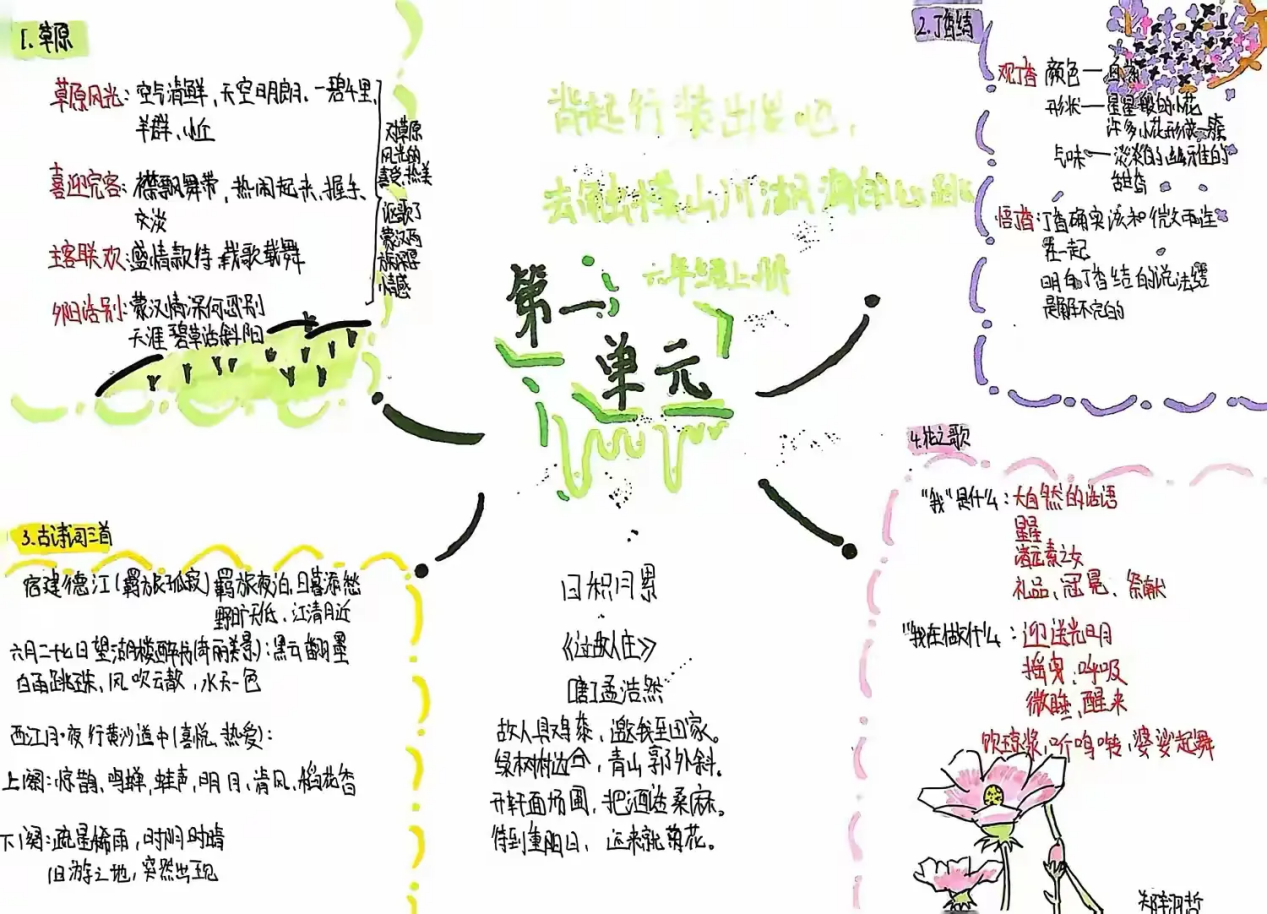 背起行装出发吧，
去触摸山川湖海的心跳
六年级上册
第一
单元
1.草原
草原风光：空气清鲜、天空明朗、一碧千里、
羊群、小丘
喜迎远客：襟飘舞带，热闹起来、握手、
交谈
主客联欢：盛情款待、载歌载舞
夕阳话别：蒙汉情深何忍别
天涯碧草话斜阳
对草原
风光的
喜爱、热美
讴歌了
蒙汉两
族深厚
情感
2.丁香结
观丁香 颜色—白
形状—星星般的小花
许多小花形成一簇
气味—淡淡的幽雅的
甜香
悟香：丁香确实该和微雨连
在一起
明白丁香结的说法
是解不完的
3.古诗词三首
宿建德江(羁旅孤寂) 羁旅夜泊，日暮添愁
野旷天低、江清月近
六月二十七日望湖楼醉书(奇丽美景)：黑云翻墨
白雨跳珠，风吹云散，水天一色
西江月·夜行黄沙道中(喜悦、热爱)：
上阕：惊鹊、鸣蝉、蛙声、明月、清风、稻花香
下阕：疏星稀雨，时阴时晴
旧游之地，突然出现
4.花之歌
“我”是什么：大自然的话语
星星
诸元素之女
礼品、冠冕、祭献
“我在做什么：迎送光明
摇曳、呼吸
微睡、醒来
饮琼浆，听鸣啭，婆娑起舞
日积月累
《过故人庄》
[唐]孟浩然
故人具鸡黍，邀我至田家。
绿树村边合，青山郭外斜。
开轩面场圃，把酒话桑麻。
待到重阳日，还来就菊花。